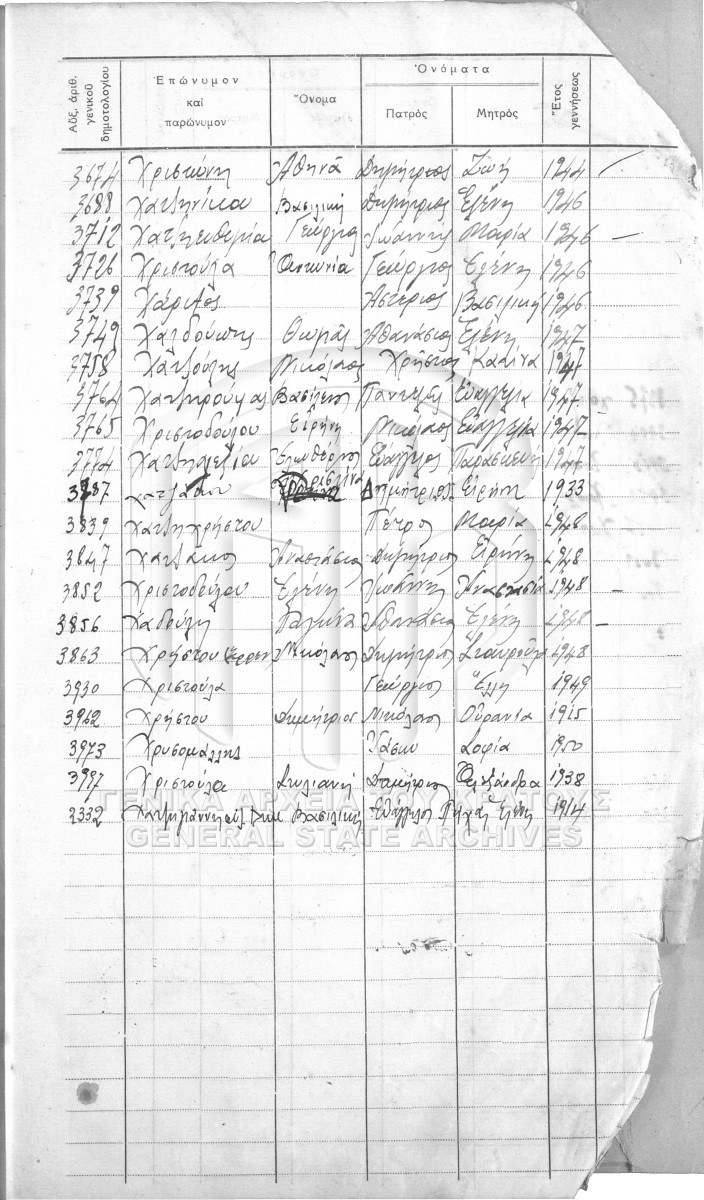 Αὔξ. ἀριθ. γενικοῦ δημοτολογίου Ἐπώνυμον καὶ παρώνυμον Ὄνομα Ὀνόματα Πατρὸς Μητρὸς Ἔτος γεννήσεως
3674 Χριστώνη Ἀθηνᾶ Δημήτριος Ζωή 1944
3688 Χατζηνίκου Βασιλική Δημήτριος Ἑλένη 1946
3712 Χατζηευθυμίου Γεώργιος Ἰωάννης Μαρία 1946
3726 Χριστούλα Γεώργιος Ἑλένη 1946
3739 Χάριτος Ἀστέριος Βασιλική 1946
3749 Θωμᾶς Ἀθανάσιος Ἑλένη 1947
3758 Χατζούλης Νικόλαος Χρῆστος 1947
3764 Βασίλειος Παντελῆς Εὐαγγελία 1947
3765 Χριστοδούλου Εἰρήνη Νικόλαος Εὐαγγελία 1947
3774 Χατζηαλεξίου Ἐλευθέριος Εὐάγγελος Παρασκευή 1947
3787 Δημήτριος Εἰρήνη 1933
3839 Χατζηχρήστου Πέτρος Μαρία 1948
3847 Χατζάκος Ἀναστάσιος Δημήτριος Εἰρήνη 1948
3852 Χριστοδούλου Ἑλένη Ἰωάννης Ἀναστασία 1948
3856 Χαδούλη Ἀθανάσιος Ἑλένη 1948
3863 Χρήστου Νικόλαος Δημήτριος Σταυρούλα 1948
3930 Χριστούλα Γεώργιος Ἕλλη 1949
3962 Χρήστου Δημήτριος Νικόλαος Οὐρανία 1915
3973 Χρυσομάλλης Ἰάσων Σοφία 1950
3997 Χριστούλα Στυλιανή Δημήτριος Ἀλεξάνδρα 1938
3332 Βασιλική Εὐάγγελος Ἑλένη 1914
ΓΕΝΙΚΑ ΑΡΧΕΙΑ ΤΟΥ ΚΡΑΤΟΥΣ
GENERAL STATE ARCHIVES